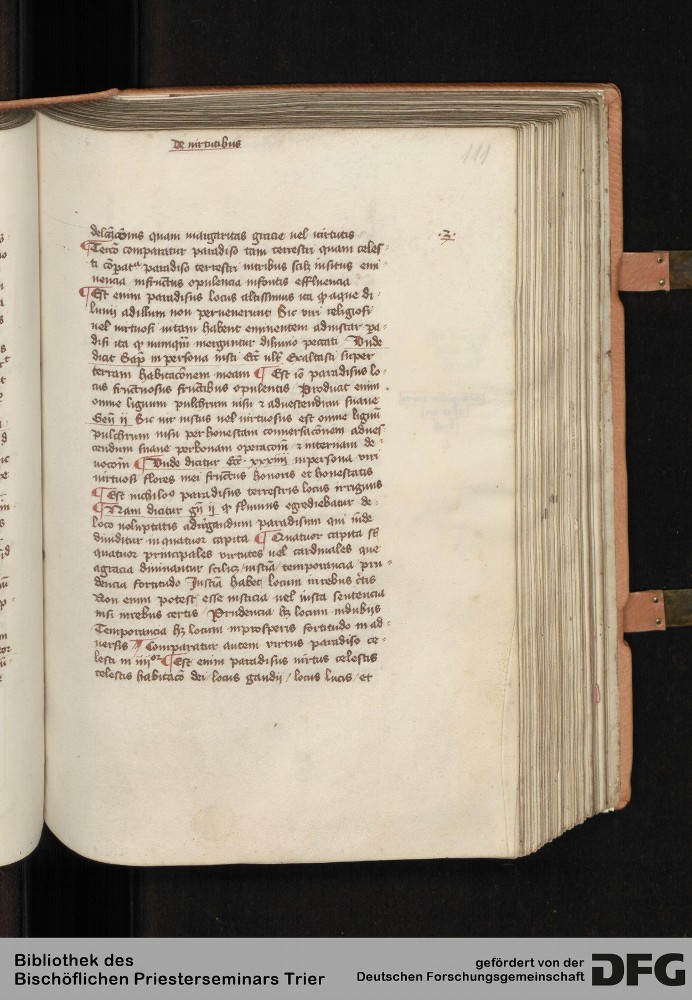 De uirtutibus
111
delcacionis quam margaritas gracie uel uirtutis
·2·
Tercio comparatur paradiso tam terrestri quam celes
ti paradiso terrestri uiribus scilz insitus emi
nencia infructus opulencia infontis effluencia
Est enim paradisus locus altissimus ita aque di
luuij ad illum non peruenerunt Sic uiri religiosi
uel uirtuosi uitam habent eminentem ad instar pa
disi ita numquam merguntur diluuio peccati Vnde
dicit Sap in persona iusti Exaltasti super
terram habitaconem meam Est paradisus lo
cus fructuosus fructibus opulentis Produxit enim
omne lignum pulchrum uisu z aduescendum suaue
Gen ij Sic uir iustus uel virtuosus est omne lignum
pulchrum uisu per honestam conuersaconem adues
cendum suaue per bonam z internam de
uocom Vnde dicitur xxiiij in persona viri
uirtuosi flores mei fructus honoris et honestatis
Est paradisus terrestris locus irriguus
Nam dicitur gn ij fluuius egrediebatur de
loco uoluptatis ad irrigandum paradisum qui inde
diuiditur in quatuor capita Quatuor capita
quatuor principales virtutes uel cardinales que
a gracia diuinantur scilicz iusticia temperancia pru
dencia fortitudo Iusticia habet locum in rebus certis
Non enim potest esse iusticia uel iusta sentencia
nisi in rebus certis Prudencia hz locum in dubijs
Temperancia hz locum in prosperis fortitudo in ad
uersis Comparatur autem virtus paradiso ce
lesti in iiij Est enim paradisus uirtus celestis
celestis habitaco dei / locus gaudij / locus lucis / et
Bibliothek des
Bischöflichen Priesterseminars Trier
gefördert von der
Deutschen Forschungsgemeinschaft
DFG